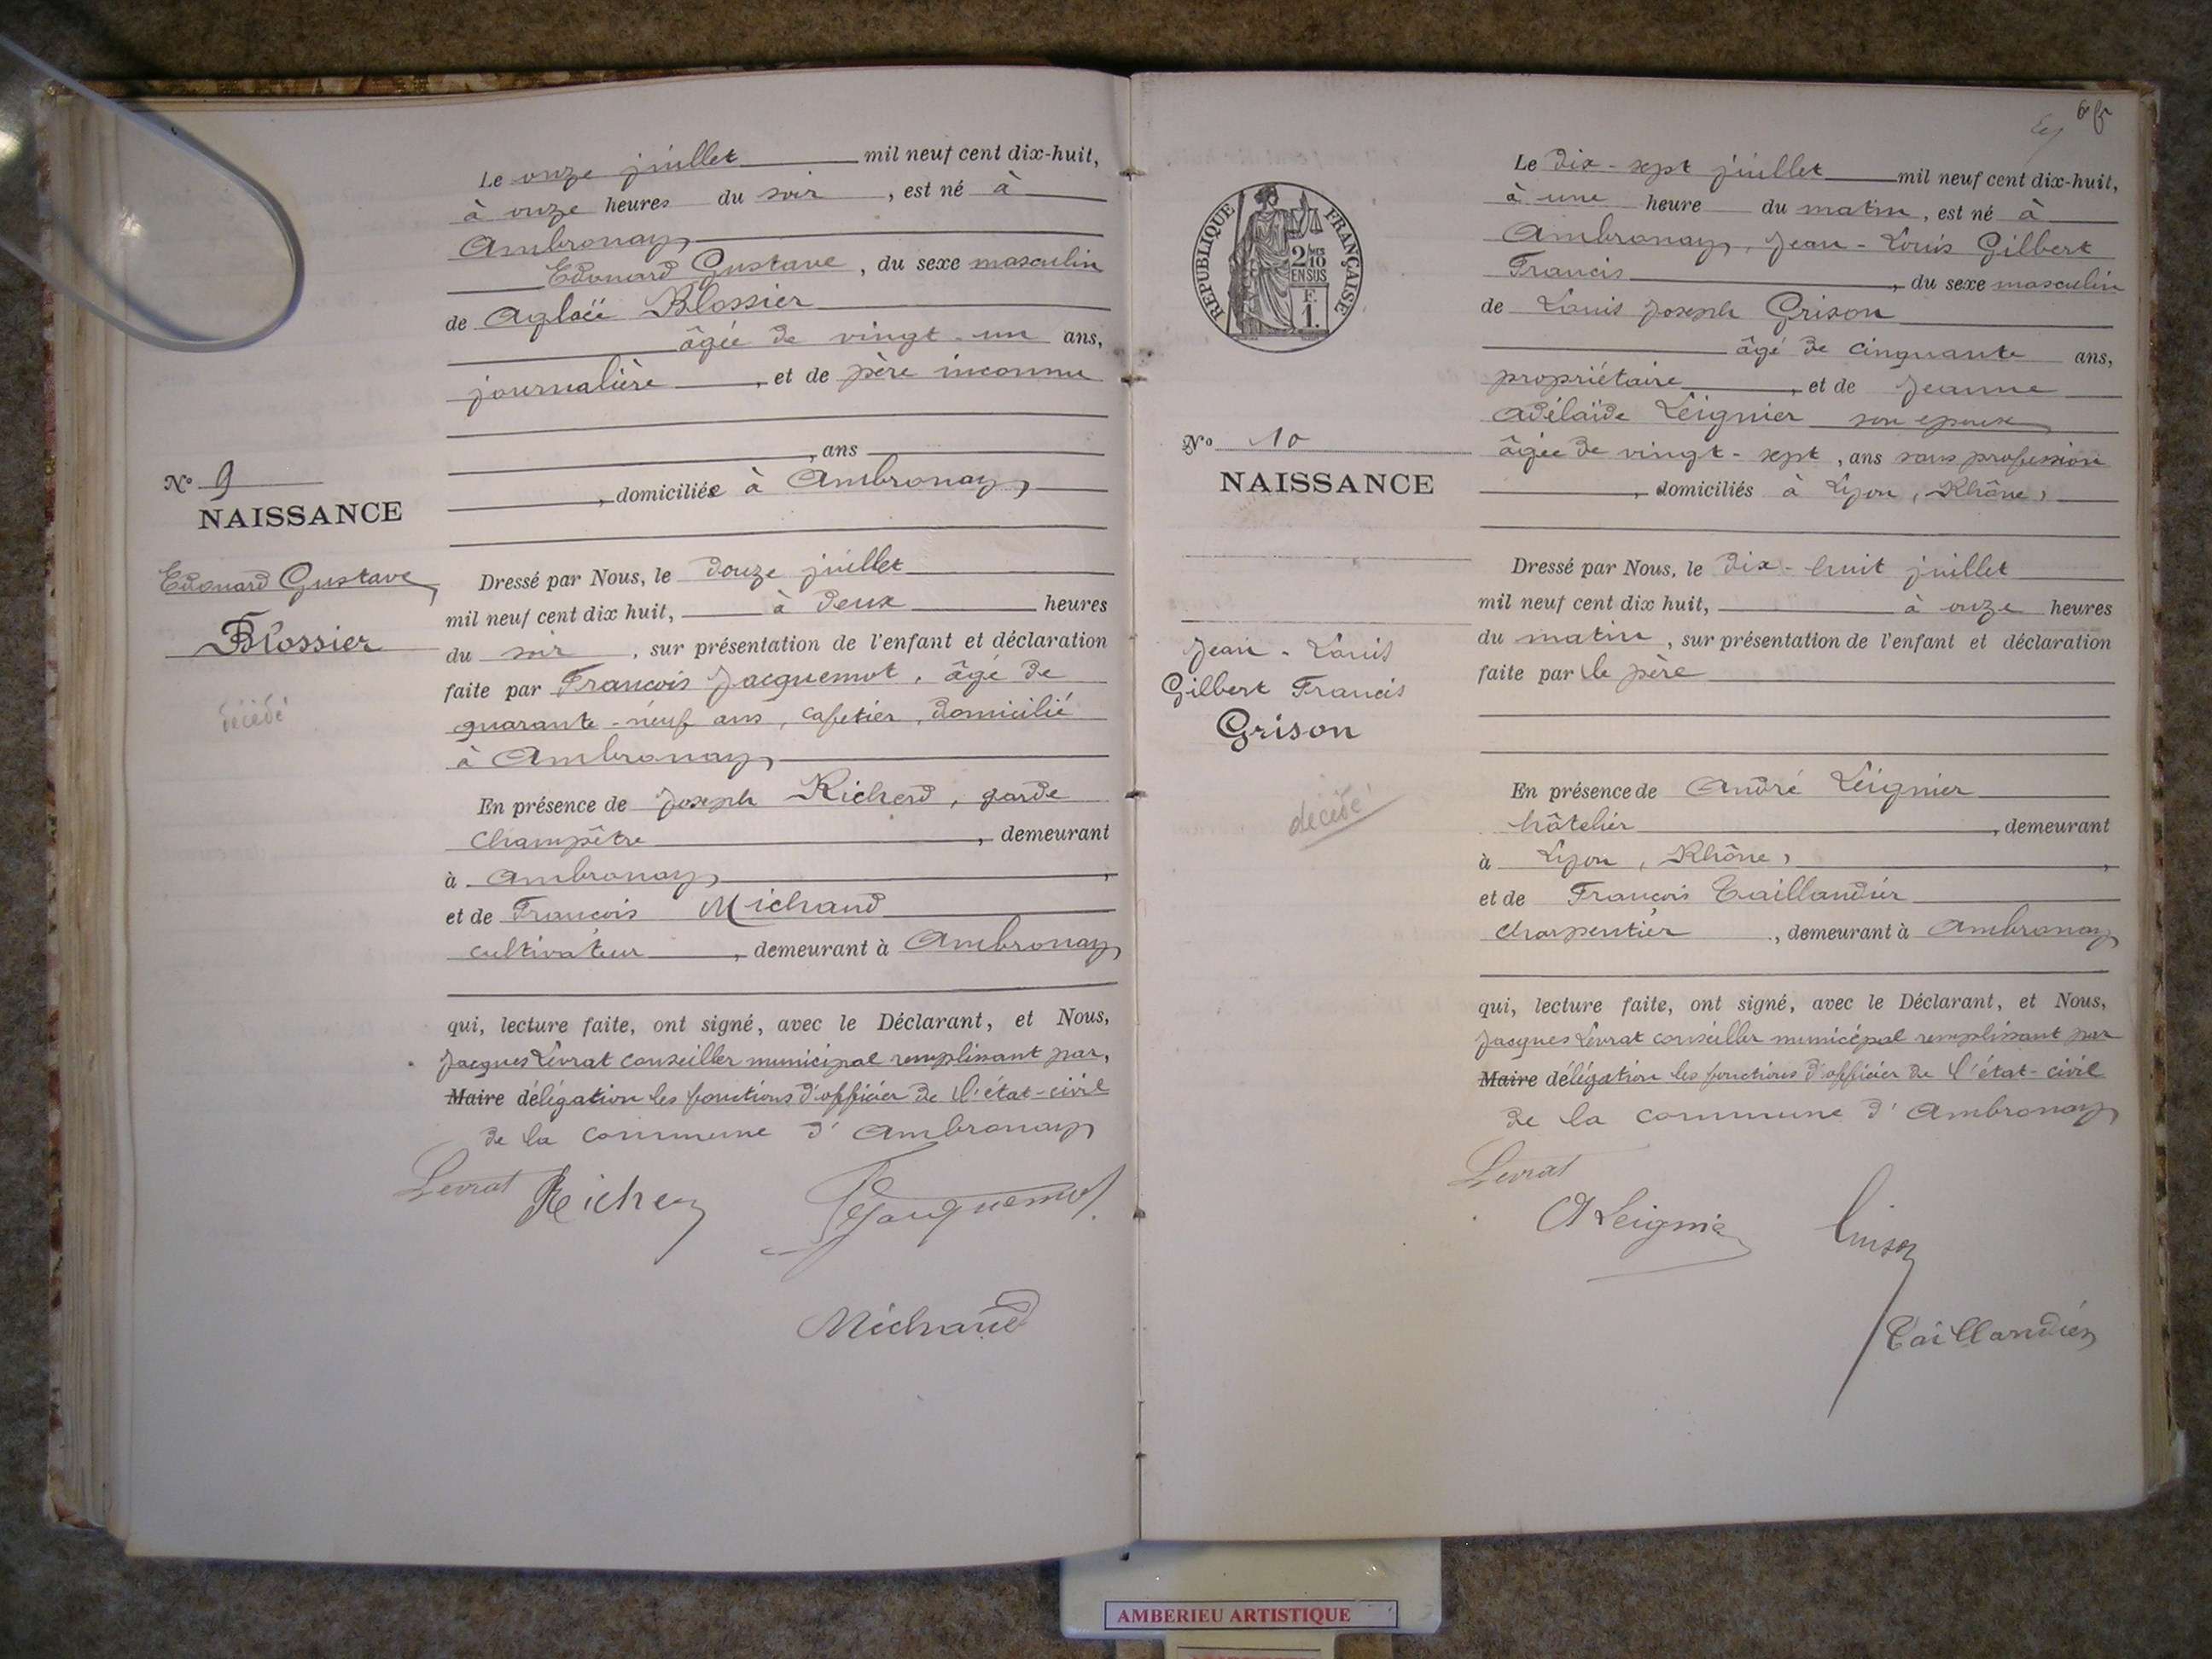 Le onze juillet mil neuf cent dix-huit,
à onze heures du soir, est né à
Ambronay
Edouard Gustave, du sexe masculin
de Aglaëi Blossier
âgée de vingt-un ans,
journalière, et de père inconnu
, ans
, domiciliée à Ambronay
N° 9
NAISSANCE
Edouard Gustave
Blossier
décédé
Dressé par Nous, le douze juillet
mil neuf cent dix huit, à deux heures
du soir, sur présentation de l'enfant et déclaration
faite par François Jacquemot, âgé de
quarante-neuf ans, cafetier, domicilié
à Ambronay
En présence de Joseph Richerd, garde
champêtre, demeurant
à Ambronay,
et de François Michaud
cultivateur, demeurant à Ambronay
qui, lecture faite, ont signé, avec le Déclarant, et Nous,
Jacques Levrat conseiller municipal remplissant par,
Maire délégation les fonctions d'officier de l'état-civil
de la commune d'Ambronay
Levrat Richerd Jacquemot
Michaud
68
Le dix-sept juillet mil neuf cent dix-huit,
à une heure du matin, est né à
Ambronay, Jean-Louis Gilbert
Francis, du sexe masculin
de Louis Joseph Grison
âgé de cinquante ans,
propriétaire, et de Jeanne
Adélaïde Leignier son epouse
âgée de vingt-sept, ans sans profession
, domiciliés à Lyon, (Rhône)
RÉPUBLIQUE FRANÇAISE
2/10 MES
EN SUS
F.
1.
N° 10
NAISSANCE
Jean-Louis
Gilbert Francis
Grison
décédé
Dressé par Nous, le dix-huit juillet
mil neuf cent dix huit, à onze heures
du matin, sur présentation de l'enfant et déclaration
faite par le père
En présence de André Leignier
hôtelier, demeurant
à Lyon, (Rhône),
et de François Taillandier
charpentier, demeurant à Ambronay
qui, lecture faite, ont signé, avec le Déclarant, et Nous,
Jacques Levrat conseiller municipal remplissant par
Maire délégation les fonctions d'officier de l'état-civil
de la commune d'Ambronay
Levrat
A Leignier Grison
Taillandier
AMBERIEU ARTISTIQUE